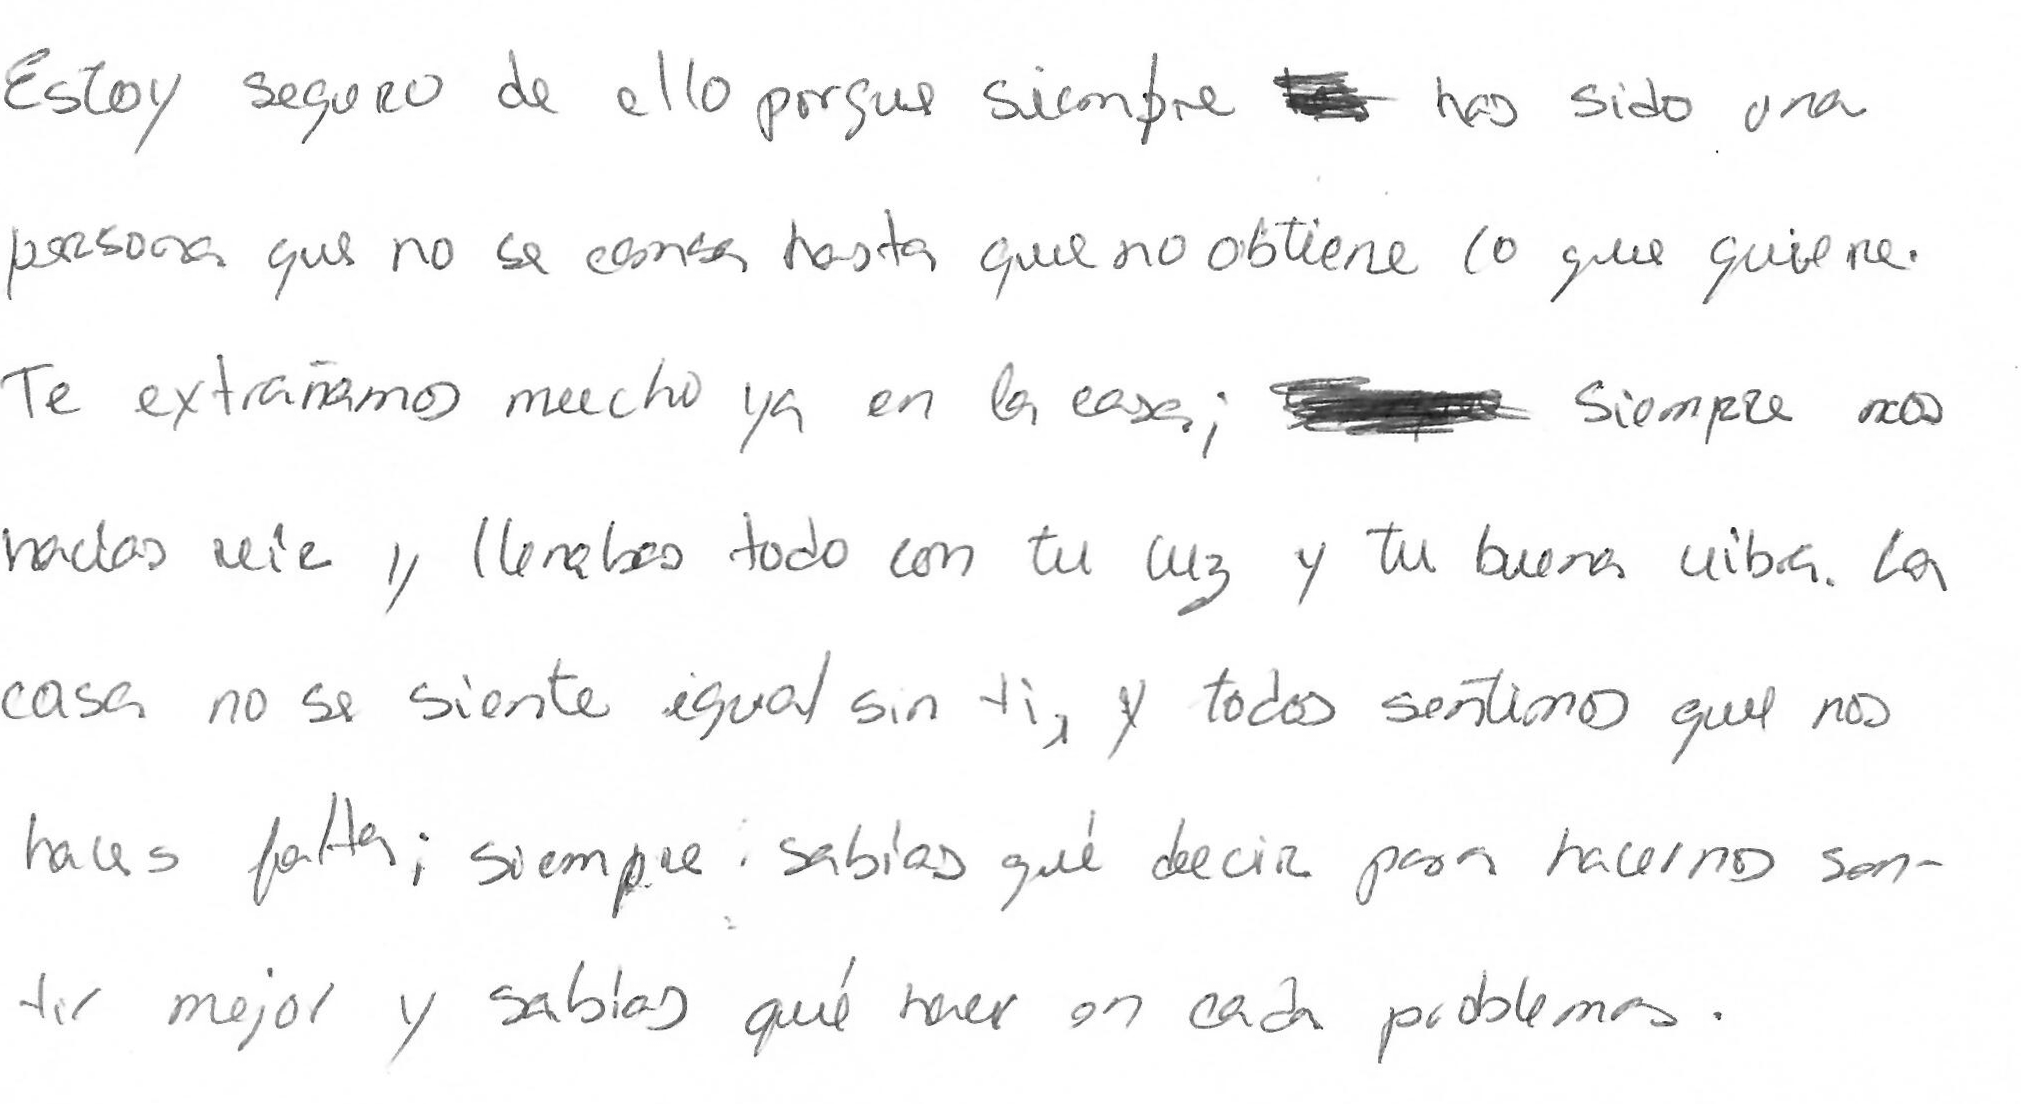 Estoy seguro de ello porque siempre has sido una
persona que no se cansa hasta que no obtiene lo que quiere.
Te extrañamos mucho ya en la casa; siempre nos
hacías reír y llenabas todo con tu luz y tu buena viba. La
casa no se siente igual sin ti, y todos sentimos que nos
haces falta; siempre sabías qué decir para hacernos sen-
tir mejor y sabías qué hacer en cada problema.